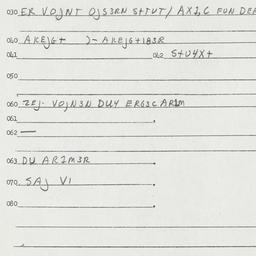 030 ER VOJNT OJS3RN S+TUT / AXI,C FUN DER
040 AKEJG+ )- AKEJG+183R
041 042 S+U4X+
050
060 ZEJ. VOJN3N DU4 ERG3C ARIM
061
062 —
063 DU ARIM3R
070 SAJ VI
080